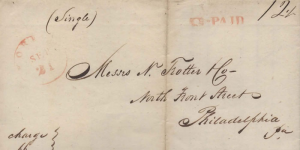 (Single)
PAID
12½
21
Messrs N. Trotter & Co—
North Front Street
Philadelphia
Pa
charge }